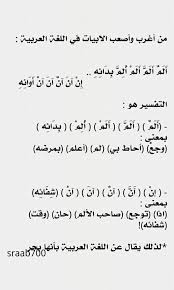 من أغرب وأصعب الابيات في اللغة العربية :
أَلَمٌ أَلَمَّ أَلَمْ أُلِمَّ بِدَائِهِ ..
إِنْ آنَ آنٌ آنَ آنُ أَوَانِهِ
التفسير هو :
- (أَلَمٌ ) ( أَلَمَّ ) ( أَلَمْ ) ( أُلِمْ ) ( بِدَائِهِ )
بمعنى :
(وجع) (أحاط بي) (لم) (أعلم) (بمرضه)
- ( إِنْ ) ( آنَ ) ( آنٌ ) ( آنَ ) ( آنُ ) ( شِفَائِهِ)
بمعنى :
(اذا) (توجع) (صاحب الألم) (حان) (وقت)
(شفائه)!
*لذلك يقال عن اللغة العربية بأنها بحر
sraab700